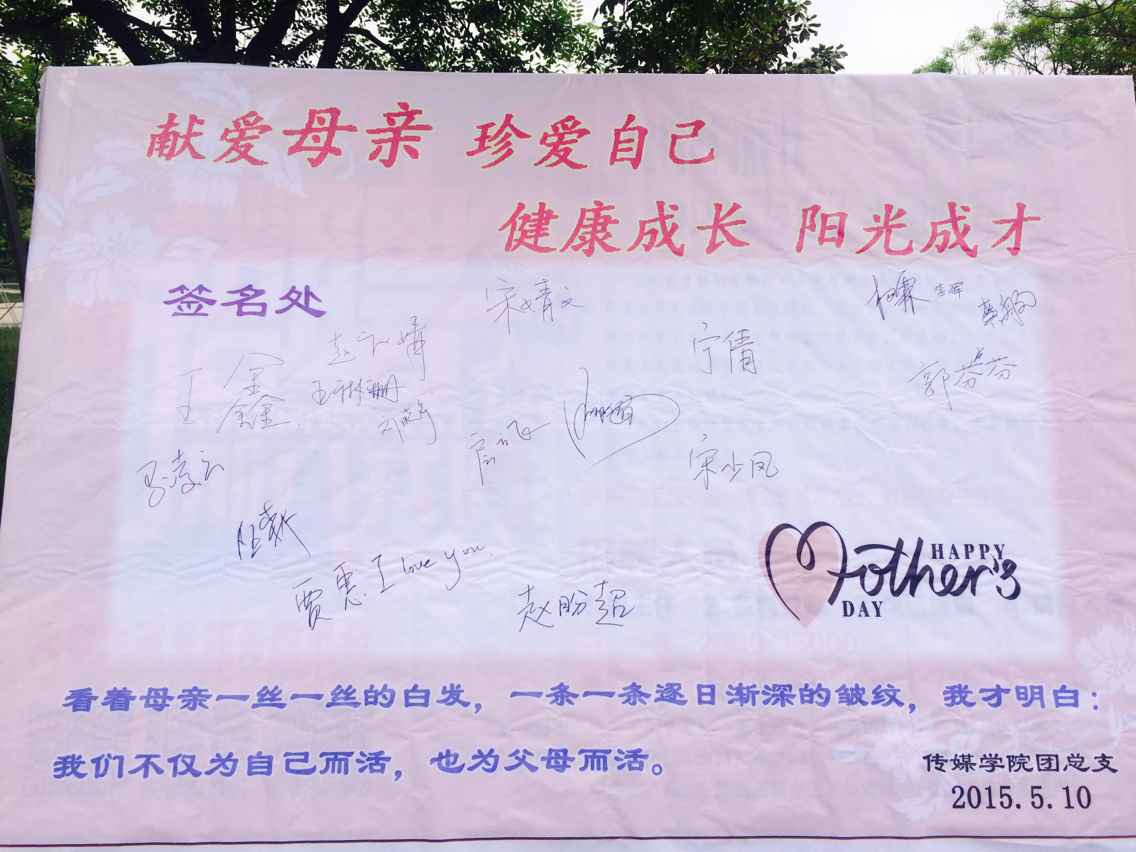 献爱母亲 珍爱自己
健康成长 阳光成才
签名处
宋婧文
宁倩
王鑫
郭芬芬
宋少凤
贾惠 I love you.
赵盼超
HAPPY
Mother's
DAY
看着母亲一丝一丝的白发，一条一条逐日渐深的皱纹，我才明白：
我们不仅为自己而活，也为父母而活。
传媒学院团总支
2015.5.10